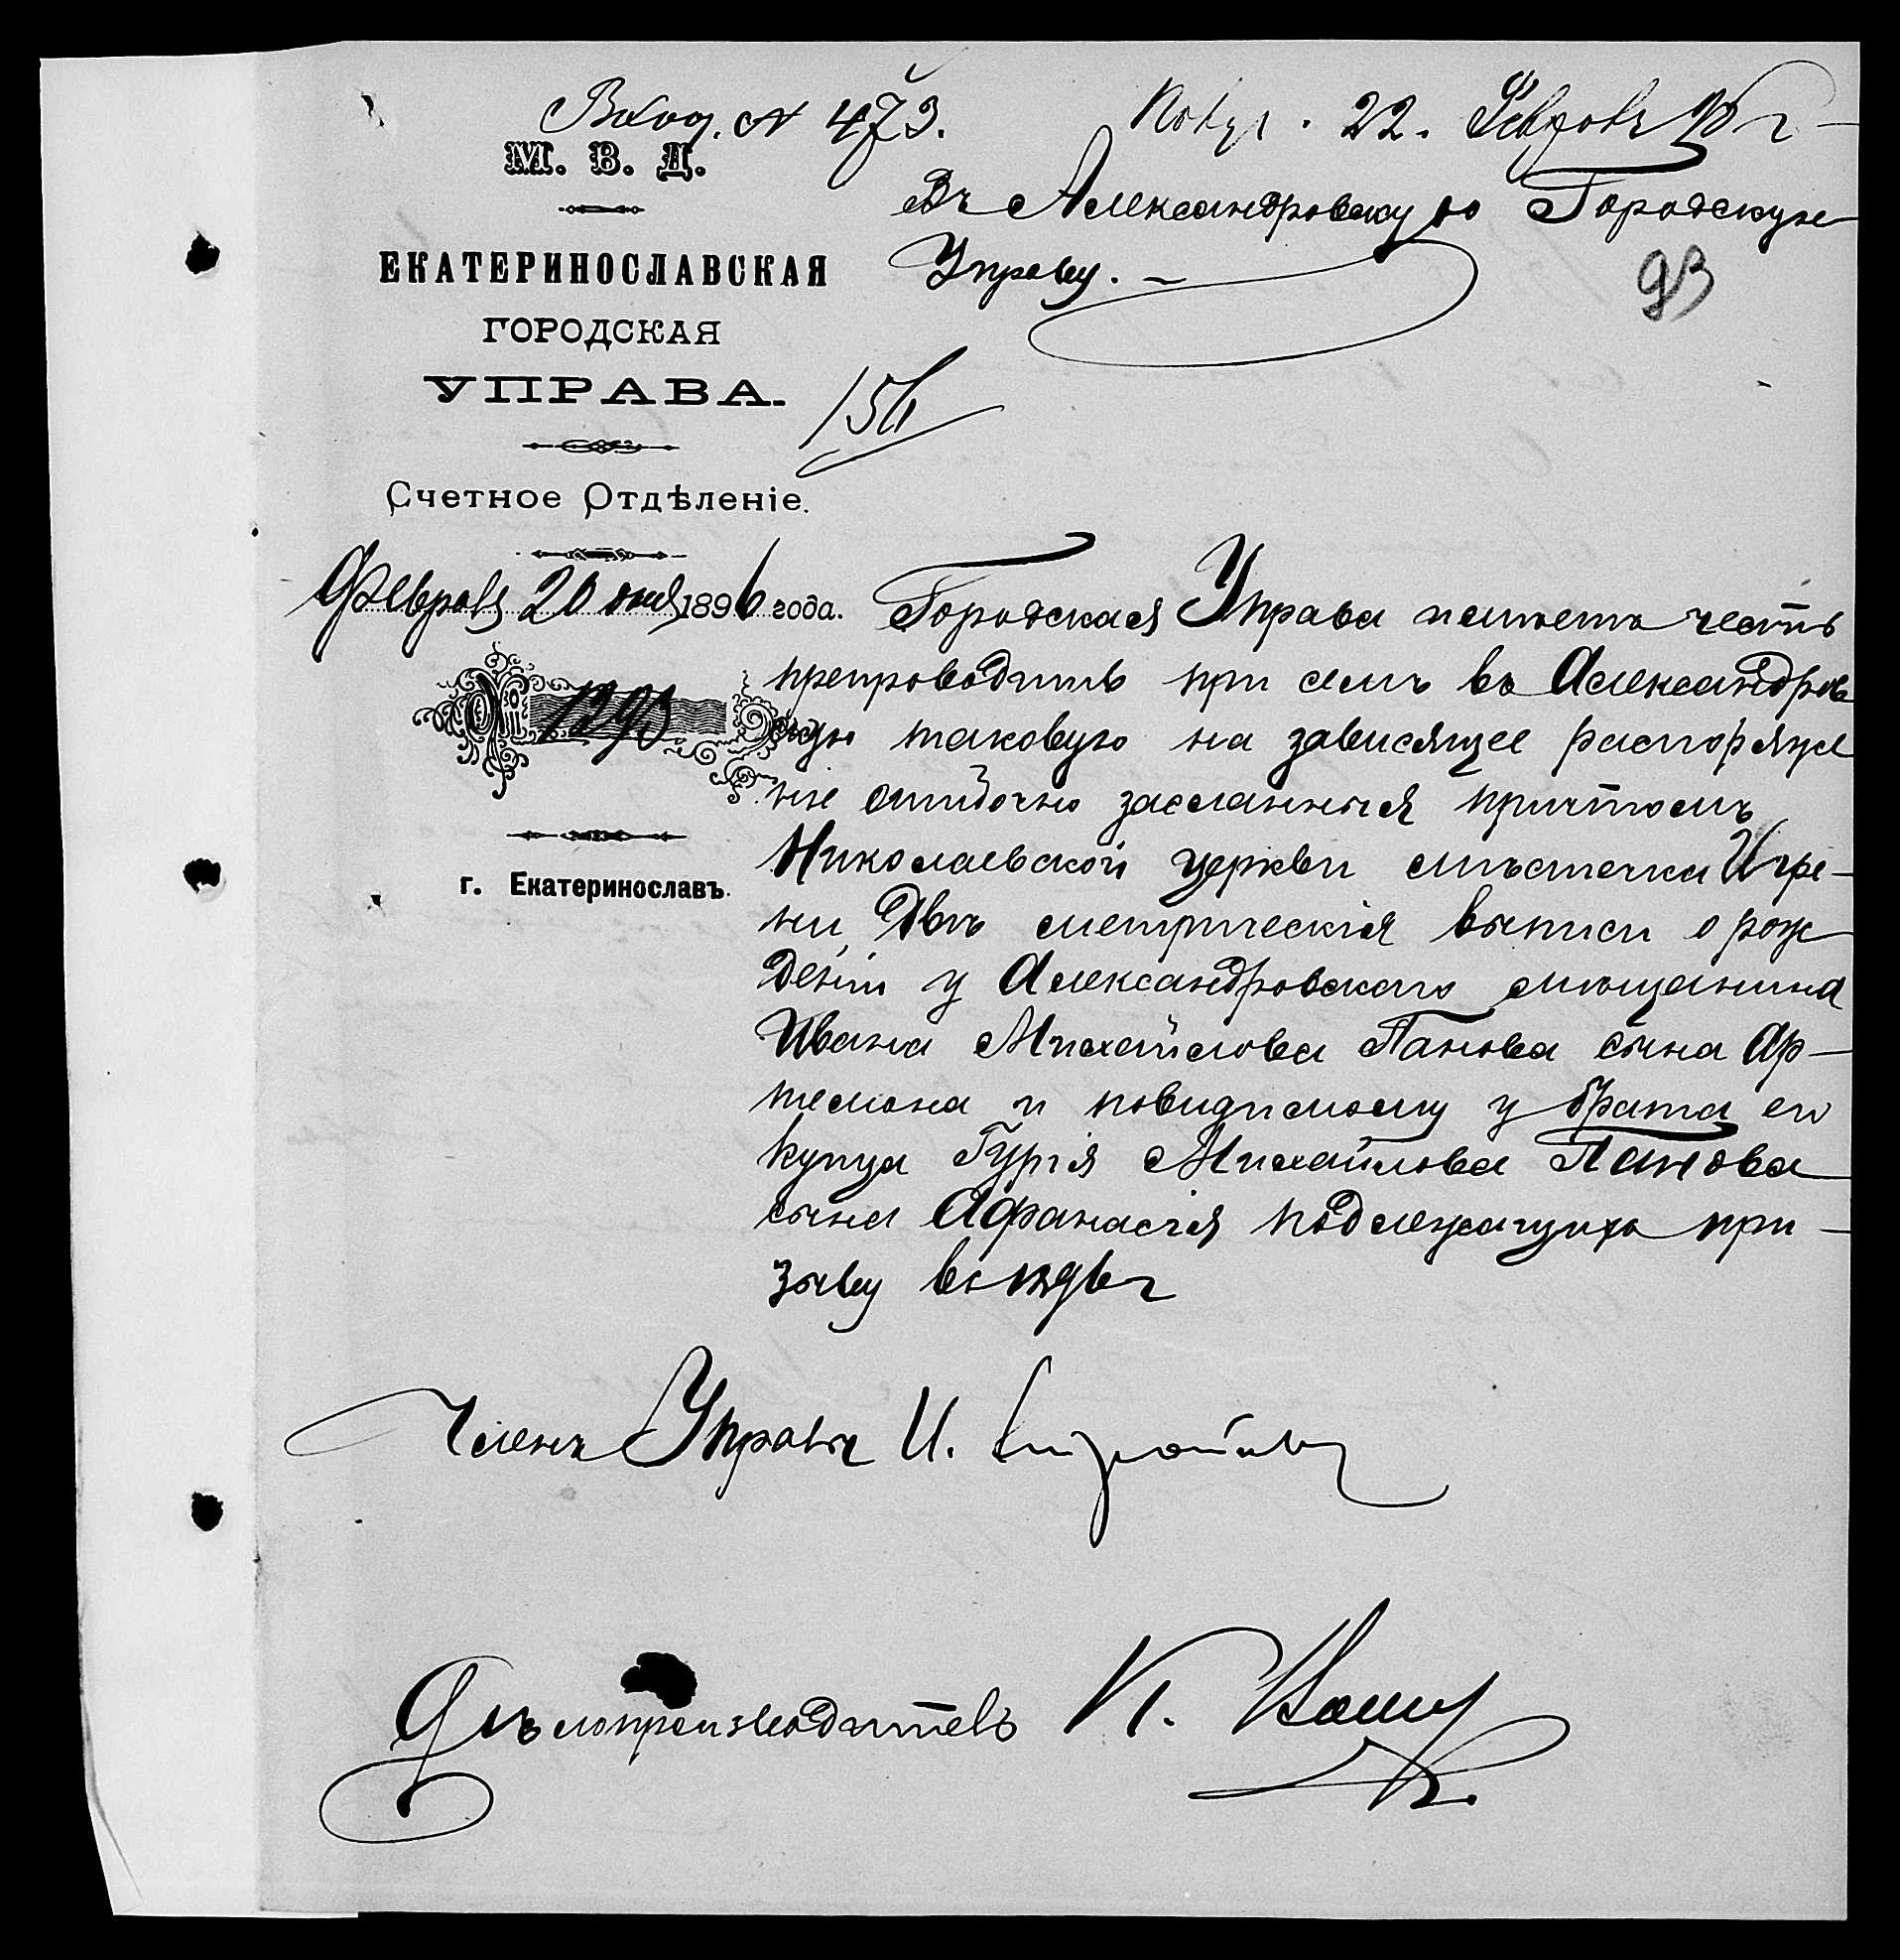 Вход. № 473.
Получ. 22. Февраля 96 г
М. В. Д.
Въ Александровскую Городскую
Управу.
93
ЕКАТЕРИНОСЛАВСКАЯ
ГОРОДСКАЯ
УПРАВА.
156
Счетное Отдѣленіе.
Февраля 20 дня 1896 года.
№ 1290
г. Екатеринославъ.
Городская Управа имѣетъ честь
препроводить при семъ въ Александров
скую таковую на зависящее распоряже
ніе ошибочно засланныя причтомъ
Николаевской церкви мѣстечка Игре-
ни, двѣ метрическія выписи о рож
деніи у Александровскаго мѣщанина
Ивана Михайлова Панова сына Ар-
темона и повидимому у брата его
купца Гурія Михайлова Панова
сына Афанасія подлежащихъ при-
зыву
Членъ Управы И.
Дѣлопроизводитель К.